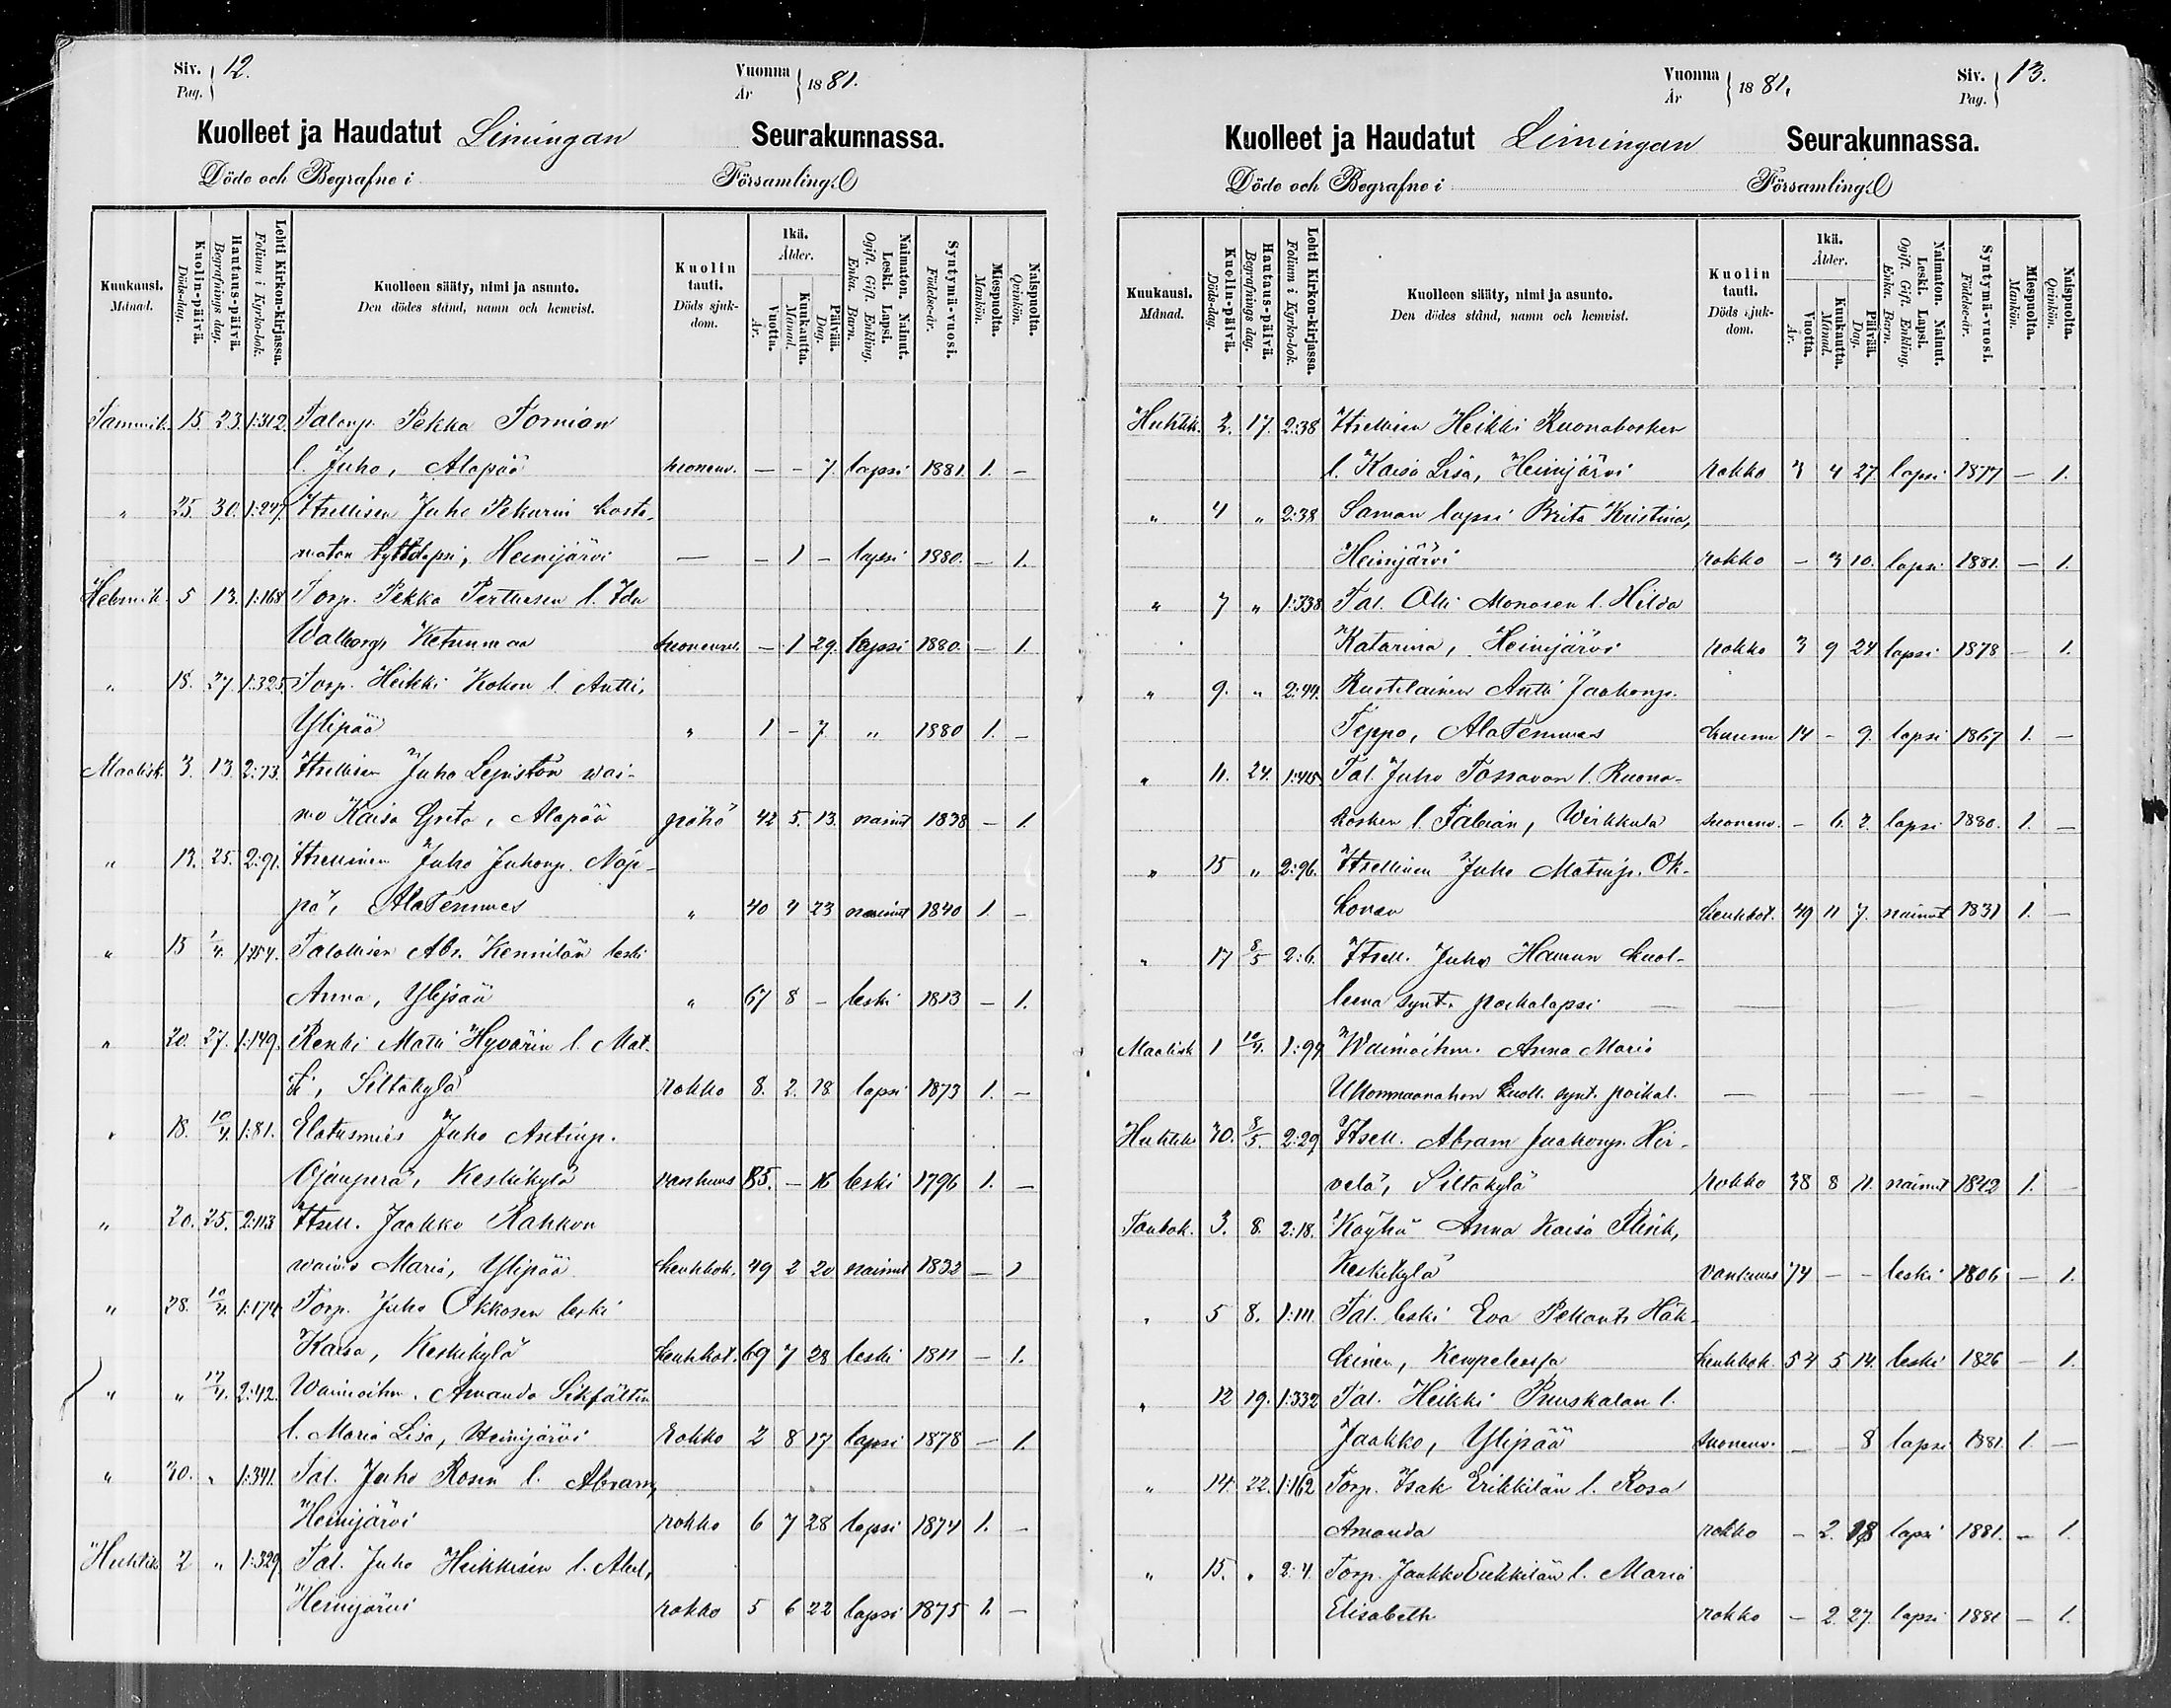 Siv. 12.
Pag.
Vuonna 1881.
År
Kuolleet ja Haudatut Limingan Seurakunnassa.
Döde och Begrafne i Församling.
Kuukausi. Månad.
Kuolin-päivä. Döds-dag.
Hautaus-päivä. Begrafnings dag.
Lehti Kirkon-kirjassa. Folium i Kyrko-bok.
Kuolleen sääty, nimi ja asunto.
Den dödes stånd, namn och hemvist.
Kuolin tauti. Döds sjuk-dom.
Ikä. Ålder.
Vuotta. År.
Kuukautta. Månad.
Päivää. Dag.
Naimaton. Nainut. Leski. Lapsi. Ogift. Gift. Enkling. Enka. Barn.
Syntymä-vuosi. Födelse-år.
Miespuolta. Mankön.
Naispuolta. Qvinkön.
Tammik. 15. 23. 1:312. Talonp. Pekka Tornion
l. Juho, Alapää kuonenv. — - 7. lapsi 1881. 1. —
" 25. 30. 1:247. Itsellisen Juho Pekurin kaste-
maton tyttölapsi, Heinijärvi — — 1 — lapsi 1880. — 1.
Helmik. 5 13. 1:168 Torp. Pekka Perttusen l. Ida
Walborg, Ketunmaa kuonenv. — 1 29. lapsi 1880. — 1.
" 18. 27. 1:325 Torp. Heikki Kokon l. Antti,
Ylipää " 1 - 7. " 1880 1. —
Maalisk. 3. 13. 2:73. Itsellisen Juho Lepistön wai-
mo Kaisa Greta, Alapää pöhö 42 5. 13. nainut 1838 — 1.
" 13. 25. 2:91. Itsellinen Juho Juhonp. Nop-
pa, Alatemmes " 40 4 23 nainut 1840 1. -
" 15 1/4. 1:254. Talollisen Abr. Kennilän leski
Anna, Ylipää " 67 8 - leski 1813 - 1.
" 20. 27. 1:149. Renki Matti Hyvärin l. Mat-
ti, Siltakylä rokko 8. 2. 18 lapsi 1873 1. —
" 18. 10/4. 1:81. Elatusmies Juho Antinp.
Ojanperä, Keskikylä vanhuus 85. — 16 leski 1796 1. —
" 20. 25. 2:113 Itsell. Jaakko Rahkon
waimo Maria, Ylipää keuhkok. 49 2 20 nainut 1832 — 1
" 28. 10/4. 1:174 Torp. Juho Okkosen leski
Kaisa, Keskikylä keuhkot. 69 7 28 leski 1811 — 1.
" " 17/4. 2:42. Waimoihm. Amanda Sikfältin
l. Maria Lisa, Heinijärvi Rokko 2 8 17 lapsi 1878 — 1.
" 30. " 1:341. Tal. Juho Rosin l. Abram,
Heinijärvi rokko 6 7 28 lapsi 1874 1. —
Huhtik 2 " 1:329 Tal. Juho Heikkisen l. Abel,
Heinijärvi rokko 5 6 22 lapsi 1875 1. —
Vuonna 1881.
År
Siv. 13.
Pag.
Kuolleet ja Haudatut Limingan Seurakunnassa.
Döde och Begrafne i Församling.
Kuukausi. Månad.
Kuolin-päivä. Döds-dag.
Hautaus-päivä. Begrafnings dag.
Lehti Kirkon-kirjassa. Folium i Kyrko-bok.
Kuolleen sääty, nimi ja asunto.
Den dödes stånd, namn och hemvist.
Kuolin tauti. Döds sjuk-dom.
Ikä. Ålder.
Vuotta. År.
Kuukautta. Månad.
Päivää. Dag.
Naimaton. Nainut. Leski. Lapsi. Ogift. Gift. Enkling. Enka. Barn.
Syntymä-vuosi. Födelse-år.
Miespuolta. Mankön.
Naispuolta. Qvinkön.
Huhtik. 2. 17. 2:38 Itsellisen Heikki Ruonakosken
l. Kaisa Lisa, Heinijärvi rokko 3 4 27. lapsi 1877 — 1.
" 4 " 2:38 Saman lapsi Brita Kristina,
Heinijärvi rokko - 3 10. lapsi 1881. — 1.
" 7 " 1:338. Tal. Olli Monosen l. Hilda
Katarina, Heinijärvi rokko 3 9 24 lapsi 1878 — 1.
" 9. " 2:94. Ruotilainen Antti Jaakonp.
Teppo, Alatemmes kuume 14 - 9. lapsi 1867 1. —
" 11. 24. 1:415. Tal. Juho Tassavan l. Ruona-
kosken l. Fabian, Wirkkula kuonenv. - 6. 2. lapsi 1880. 1. —
" 15 " 2:96. Itsellinen Juho Matinp. Ok-
konen keuhkot. 49 11 7. nainut 1831 1. —
" 17 8/5 2:6. Itsell. Juho Hannun kuol-
leena synt. poikalapsi — — — —
Maalisk 1 10/4. 1:99 Waimoihm. Anna Maria
Ukonmaanahon kuoll. synt. poikal. — — — —
Huhtik 30. 8/5. 2:29 Itsell. Abram Jaakonp. Hir-
velä, Siltakylä rokko 38 8 11. nainut 1842 1. —
Toukok. 3. 8. 2:18. Köyhä Anna Kaisa Flink,
Keskikylä vanhuus 74 — — leski 1806 — 1.
" 5 8. 1:111. Tal. leski Eva Pekant. Häk-
kinen, Kempeleessa keuhkok. 54 5 14. leski 1826 — 1.
" 12 19. 1:332 Tal. Heikki Puuskalan l.
Jaakko, Ylipää kuonenv. — — 8 lapsi 1881. 1. —
" 14. 22. 1:162 Torp. Isak Erikkilän l. Rosa
Amanda rokko - 2. 18 lapsi 1881. — 1.
" 15. " 2:4. Torp. Jaakko Erikkilän l. Maria
Elisabeth rokko - 2. 27. lapsi 1881 — 1.